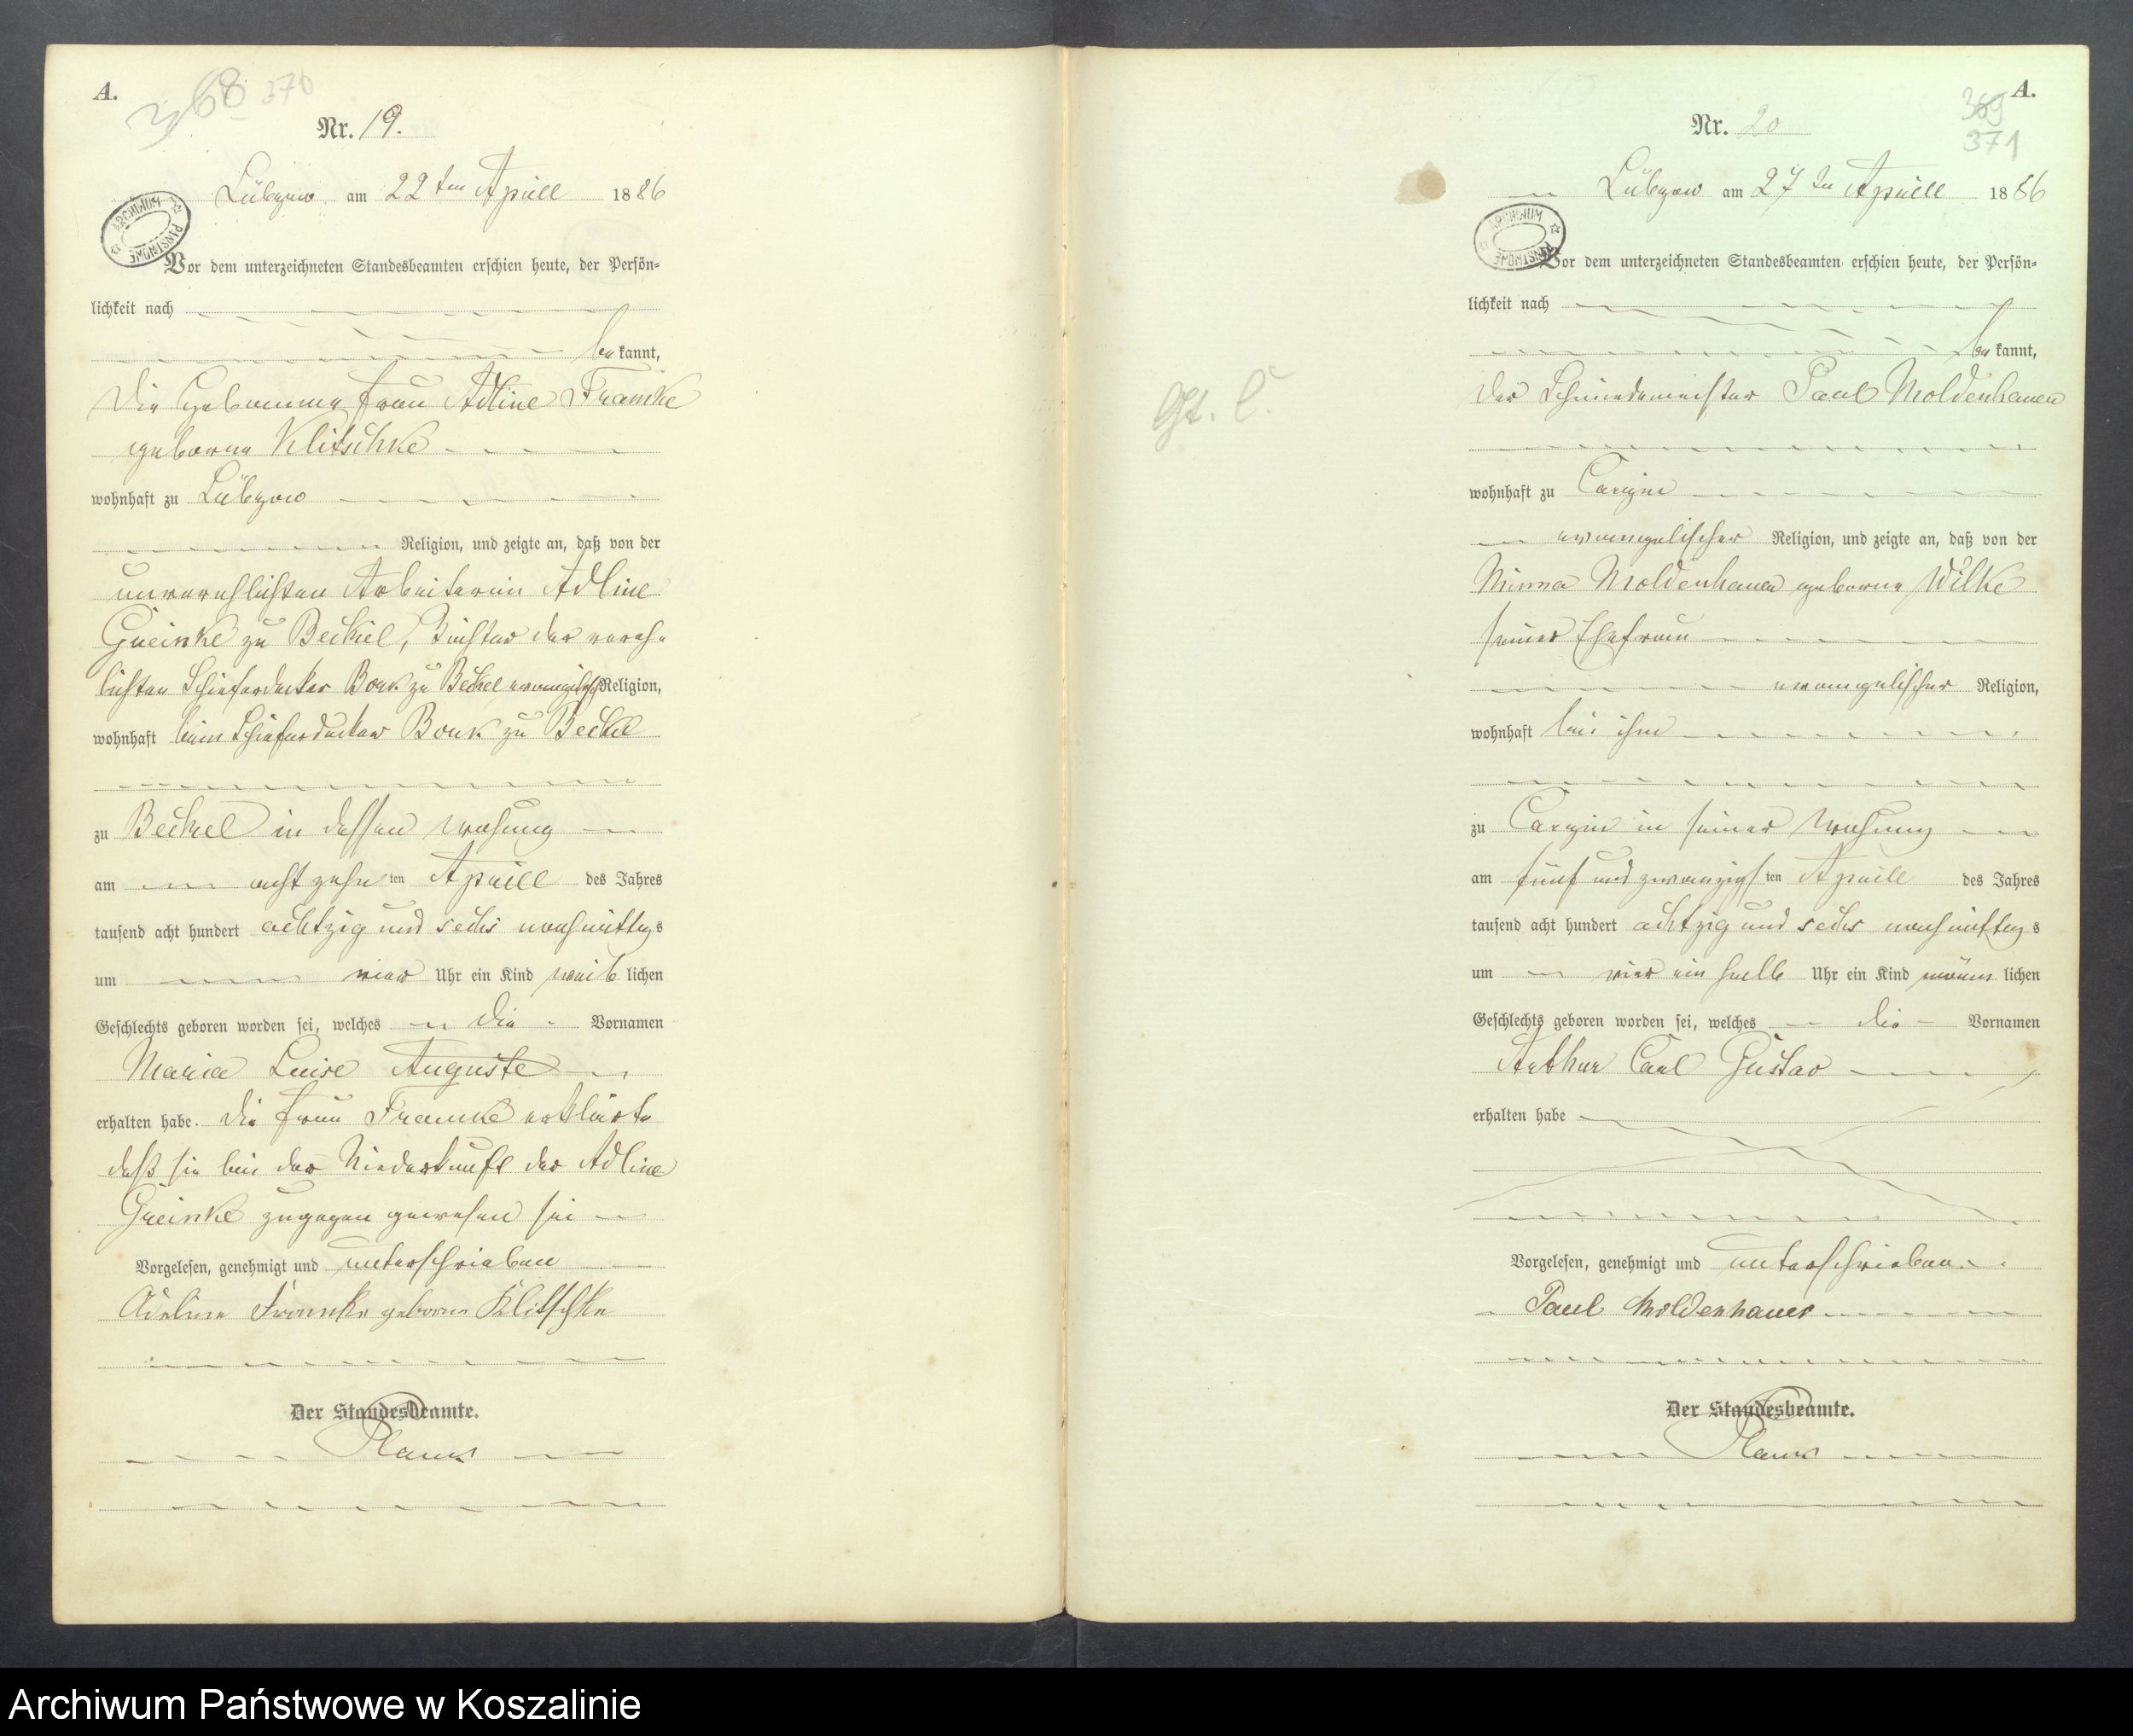 A.
368 370
Nr. 19.
Lübzow am 22ten Aprill 1886
ARCHIWUM PAŃSTWOWE
Vor dem unterzeichneten Standesbeamten erschien heute, der Persön-
lichkeit nach
be kannt,
die Hebamme Frau Adline Framke
geborne Klitschke
wohnhaft zu Lübzow
Religion, und zeigte an, daß von der
unverehlichten Arbeiterin Adline
zu Beckel, Tochter der vereh-
lichten Schieferdecker Bonk zu Beckel evangelisch Religion,
wohnhaft beim Schieferdecker Bonk zu Beckel
zu Beckel in dessen Wohnung
am acht zehn ten Aprill des Jahres
tausend acht hundert achtzig und sechs nachmittag s
um vier Uhr ein Kind weib lichen
Geschlechts geboren worden sei, welches die Vornamen
Maria Luise Auguste
erhalten habe. die Frau Framke erklärte
daß sie bei der Niederkunft der Adline
zugegen gewesen sei
Vorgelesen, genehmigt und unterschrieben
Adeline Framke geborne Klitschke
Der Standesbeamte.
A.
369
371
Nr. 20
Lübzow am 27ten Aprill 1886
ARCHIWUM PAŃSTWOWE
Vor dem unterzeichneten Standesbeamten erschien heute, der Persön-
lichkeit nach
be kannt,
der Schmiedemeister Paul Moldenhauer
wohnhaft zu Carzin
evangelischer Religion, und zeigte an, daß von der
Minna Moldenhauer geborne Wilke
seiner Ehefrau
evangelischer Religion,
wohnhaft bei ihm
zu Carzin in seiner Wohnung
am fünf und zwanzigs ten Aprill des Jahres
tausend acht hundert achtzig und sechs nachmittag s
um vier ein halb Uhr ein Kind männ lichen
Geschlechts geboren worden sei, welches die Vornamen
Arthur Carl Gustav
erhalten habe
Vorgelesen, genehmigt und unterschrieben.
Paul Moldenhauer
Der Standesbeamte.
Archiwum Państwowe w Koszalinie